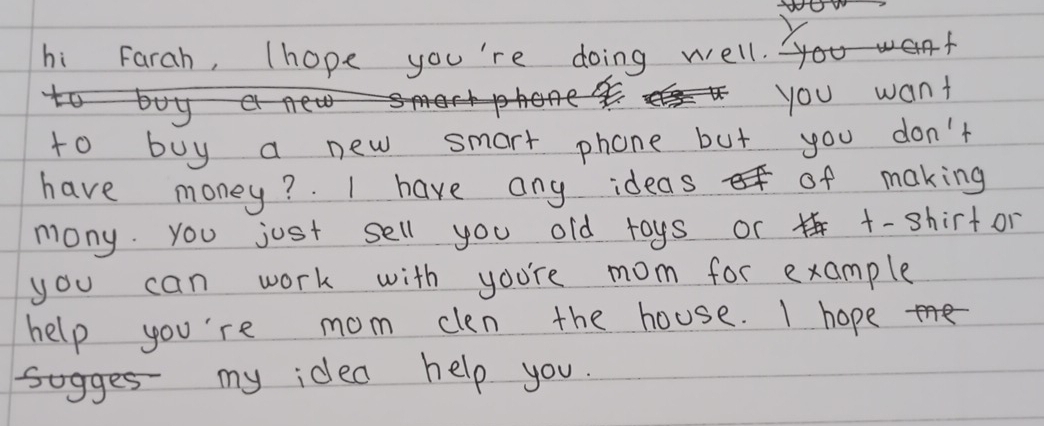 wow
hi Farah, I hope you're doing well. you want
to buy a new smart phone you want
to buy a new smart phone but you don't
have money?. I have any ideas of of making
mony. you just sell you old toys or t-shirt or
you can work with you're mom for example
help you're mom clen the house. I hope me
sugges my idea help you.